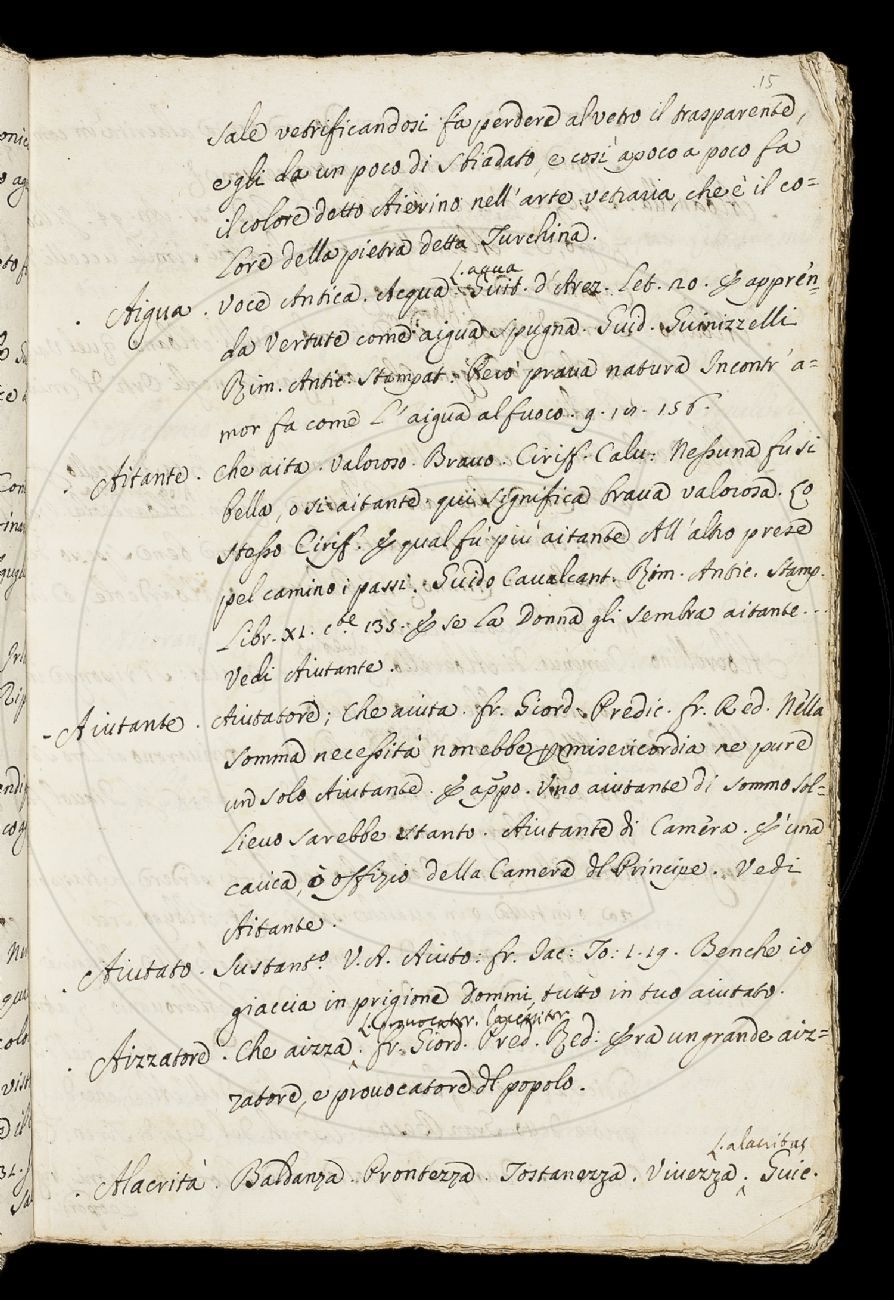 15
sale vetrificandosi fa perdere al vetro il trasparente,
e gli da un poco di sbiadato, e così apoco a poco fa
il colore detto Aierino nell'arte vetraria, che è il co=
lore della pietra detta Turchina.
L. aqua
Aigua. Voce Antica. Acqua. Guit. d'Arez. Let. 20. E appren-
da Vertute come aigua spugna. Guid. Guinizzelli
Rim. Antic. Stampat. Reio prava natura Incontr' a=
mor fa come L'aigua al fuoco. 156.
Aitante. Che aita. Valoroso. Bravo. Ciriff. Calv: Nessuna fu si
bella, o si aitante qui significa brava valorosa. Lo
stesso Ciriff. E qual fu più aitante All'altro prese
pel camino i passi. Guido Cavalcant. Rim. Antic. Stamp.
Libr. XI. cte. 135. E se la Donna gli sembra aitante..
Vedi Aiutante
- Aiutante. Aiutatore; Che aiuta. fr. Giord. Predic. fr. Red. Nella
somma necessità non ebbe misericordia ne pure
un solo Aiutante. E appo. Uno aiutante di sommo sol-
lievo sarebbe stanto. Aiutante di Camera. E' una
carica, ò offizio della Camera dl Principe. Vedi
Aitante.
Aiutato. Sustanto. V.A. Aiuto: fr. Iac: To: 1. 19. Benche io
giaccia in prigione Dommi tutto in tuo aiutato.
L. provocator.
Aizzatore. Che aizza. fr. Giord. Pred. Red: Era un grande aiz=
zatore, e provocatore dl popolo.
L. alacritas
Alacrità. Baldanza. Prontezza. Tostanezza. Vivezza. Guic.